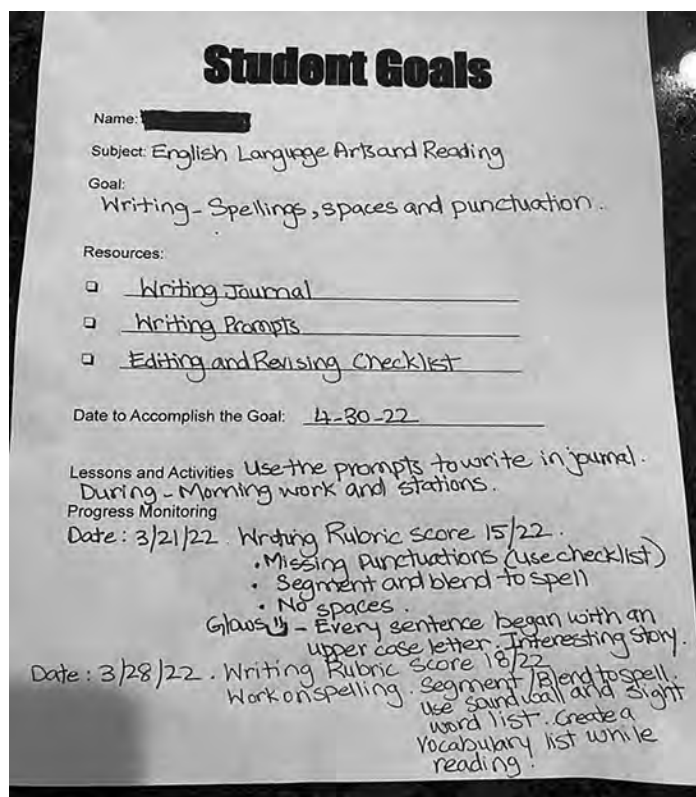 Student Goals
Name:
Subject: English Language Arts and Reading
Goal:
Writing - Spellings, spaces and punctuation.
Resources:
Writing Journal
Writing Prompts
Editing and Revising Checklist
Date to Accomplish the Goal: 4-30-22
Lessons and Activities Use the prompts to write in journal.
During - Morning work and stations.
Progress Monitoring
Date: 3/21/22. Writing Rubric score 15/22.
• Missing Punctuations (use checklist)
• Segment and blend to spell
• No spaces.
Glows - Every sentence began with an
upper case letter. Interesting story.
Date: 3/28/22. Writing Rubric Score 18/22
Work on spelling. Segment/Blend to spell.
Use sound wall and sight
word list. Create a
vocabulary list while
reading!